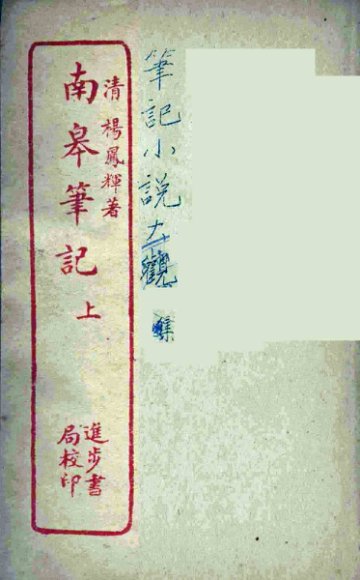 筆記小説大觀
集
清 楊鳳輝著
南皋筆記 上
進步書
局校印